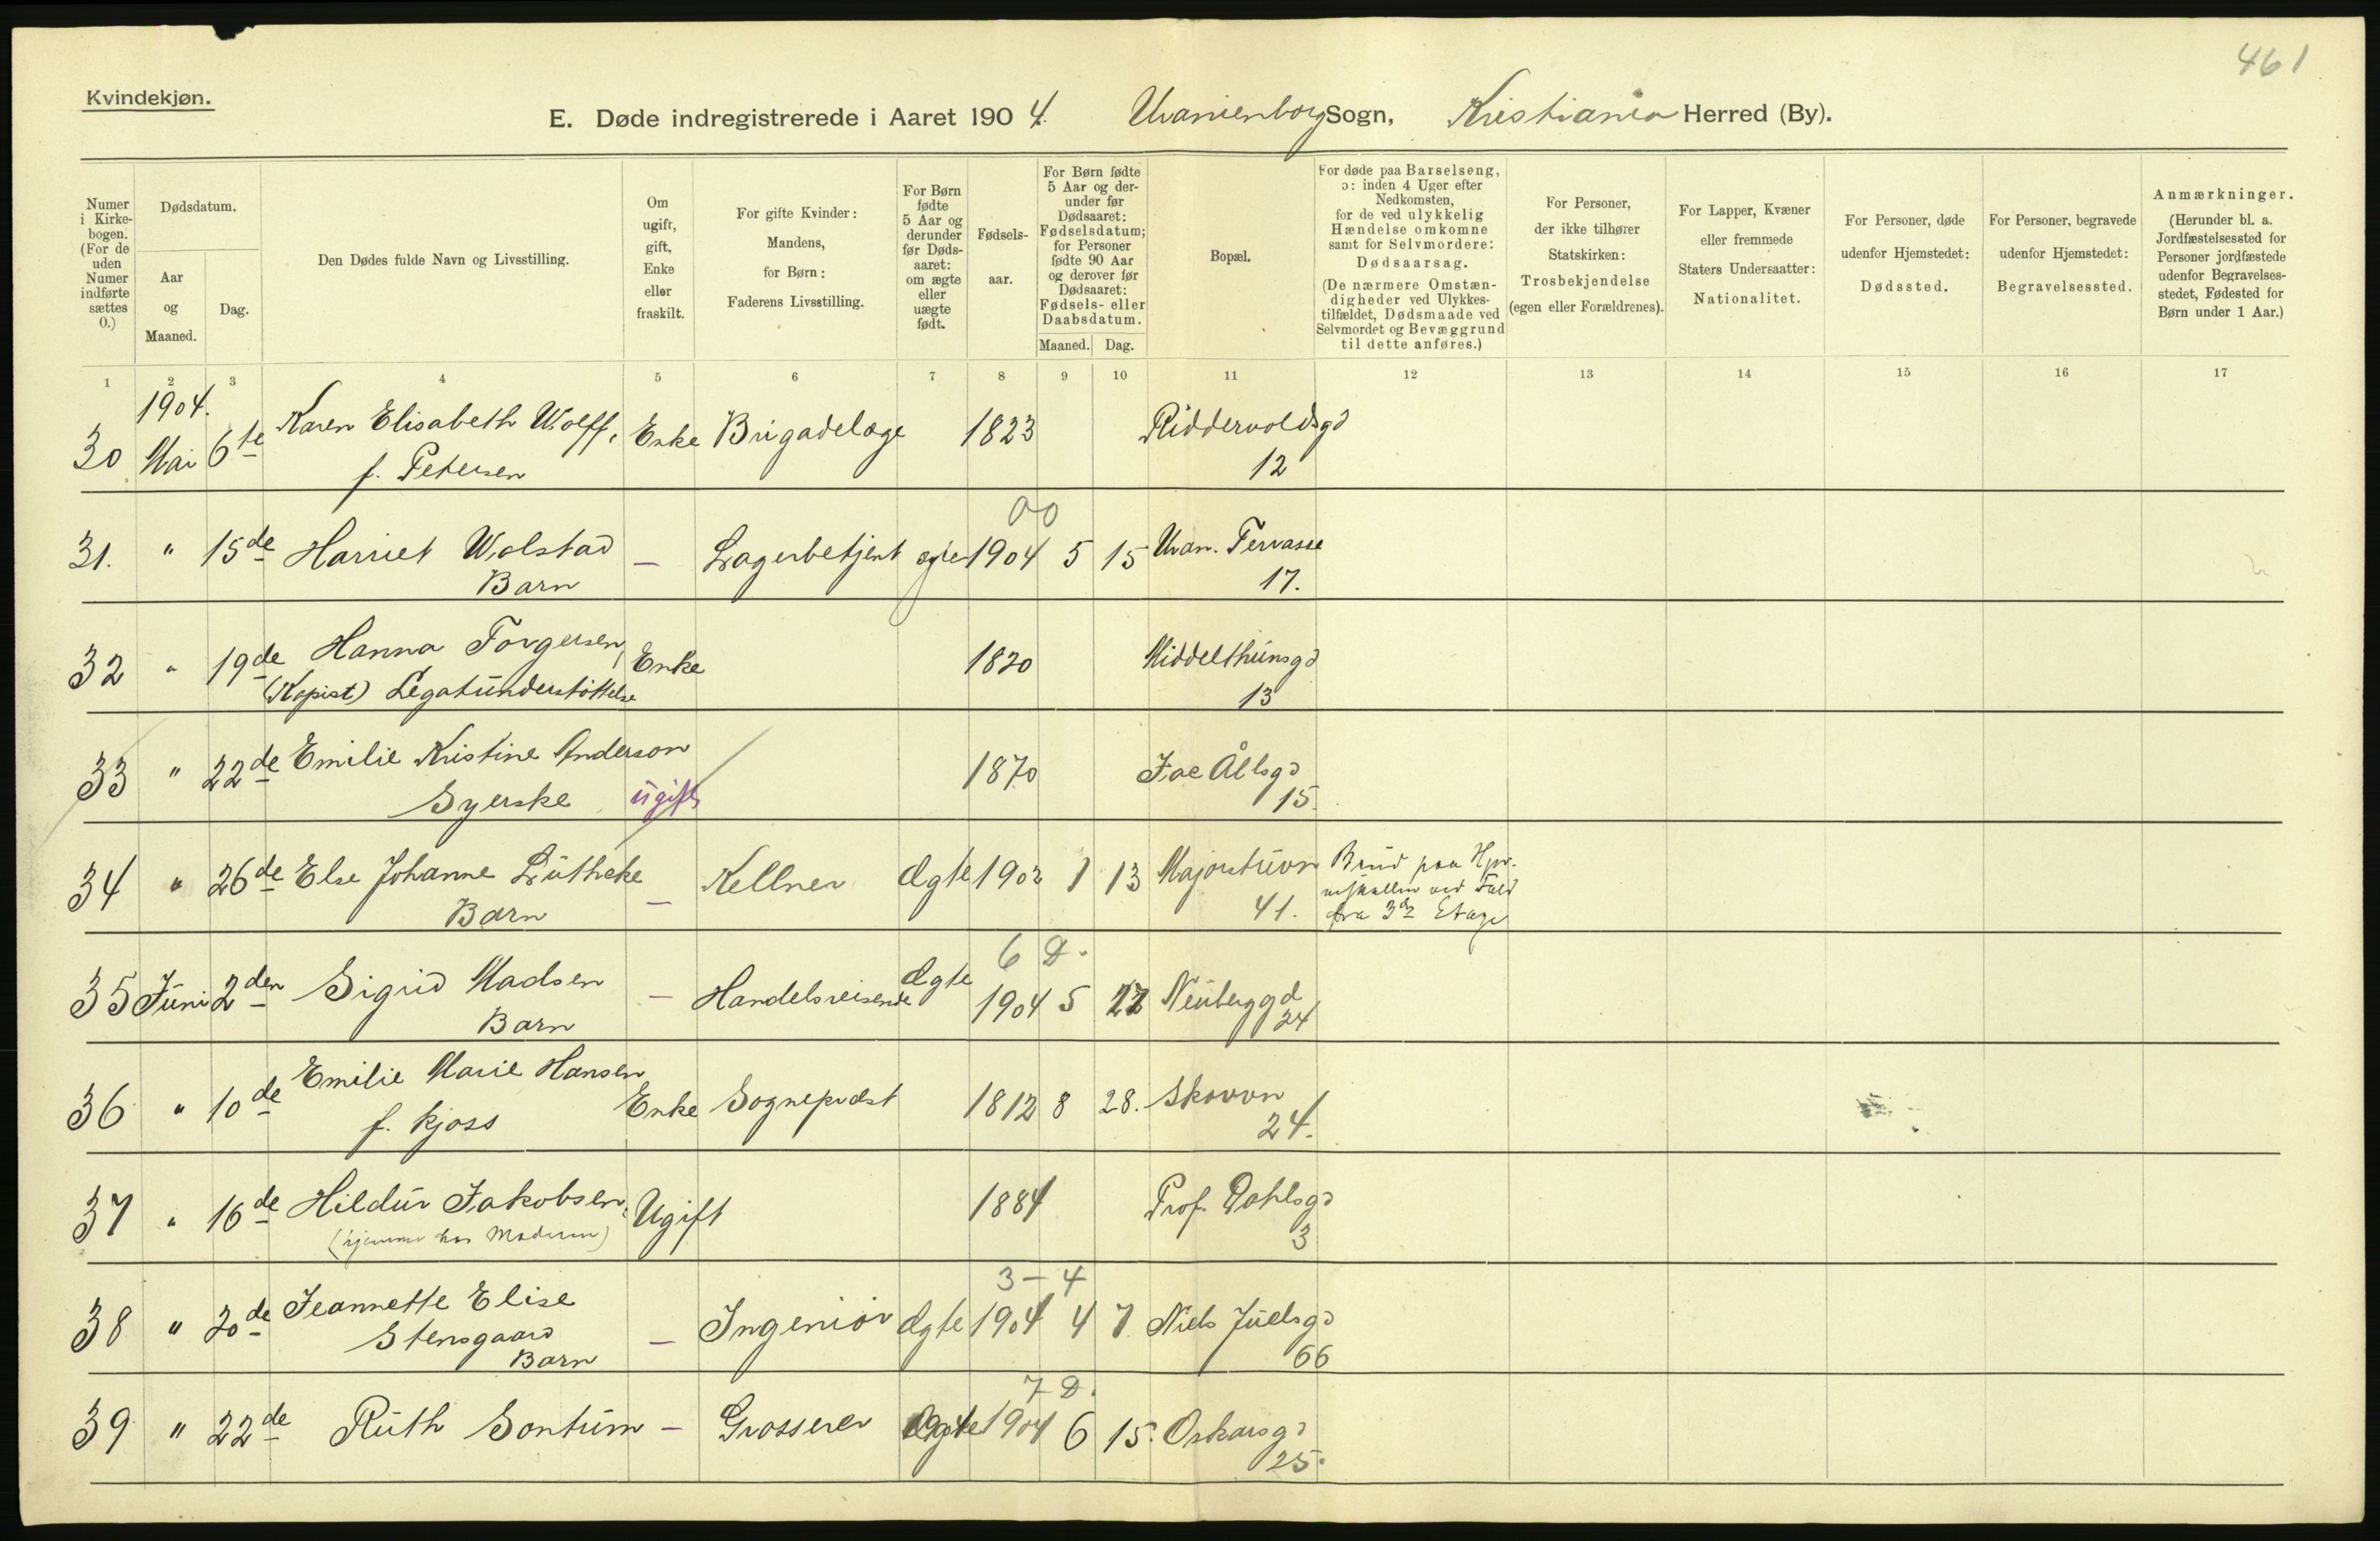 461
Kvindekjøn.
E. Døde indregistrerede i Aaret 1904. Uranienborg Sogn, Kristiania Herred (By).
Numer i Kirkebogen. (For de uden Numer indførte sættes 0.)
Dødsdatum.
Aar og Maaned.
Dag.
Den Dødes fulde Navn og Livsstilling.
Om ugift, gift, Enke eller fraskilt.
For gifte Kvinder: Mandens, for Børn: Faderens Livsstilling.
For Børn fødte 5 Aar og derunder før Dødsaaret: om ægte eller uægte født.
Fødselsaar.
For Børn fødte 5 Aar og derunder før Dødsaaret: Fødselsdatum; for Personer fødte 90 Aar og derover før Dødsaaret: Fødsels- eller Daabsdatum.
Maaned. Dag.
Bopæl.
For døde paa Barselseng, ɔ: inden 4 Uger efter Nedkomsten, for de ved ulykkelig Hændelse omkomne samt for Selvmordere: Dødsaarsag. (De nærmere Omstændigheder ved Ulykkestilfældet, Dødsmaade ved Selvmordet og Bevæggrund til dette anføres.)
For Personer, der ikke tilhører Statskirken: Trosbekjendelse (egen eller Forældrenes).
For Lapper, Kvæner eller fremmede Staters Undersaatter: Nationalitet.
For Personer, døde udenfor Hjemstedet: Dødssted.
For Personer, begravede udenfor Hjemstedet: Begravelsessted.
Anmærkninger. (Herunder bl. a. Jordfæstelsessted for Personer jordfæstede udenfor Begravelsesstedet, Fødested for Børn under 1 Aar.)
1 2 3 4 5 6 7 8 9 10 11 12 13 14 15 16 17
1904.
30 Mai 6te Karen Elisabeth Wolff, Enke Brigadelæge 1823 Riddervoldsgd
f. Petersen 12
00
31. " 15de Harriet Wolstad — Lagerbetjent ægte 1904 5 15 Uran. Terrasse
Barn 17.
32 " 19de Hanna Torgersen, Enke 1820 Middelthunsgd
(Kopist) Legatunderstøttelse 13
33 " 22de Emilie Kristine Anderson 1870 Jac Ållsgd
Syerske ugift 15.
34 " 26de Else Johanne Lütheke — Kellner Ægte 1902 1 13 Majorstuvn Brud paa
Barn 41. ved Fald
fra 3de Etage
6 D.
35 Juni 2den Sigrid Madsen — Handelsreisende Ægte 1904 5 27 Neuberggd
Barn 24
36 " 10de Emilie Marie Hansen Enke Sogneprest 1812 8 28. Skovvn
f. Kjoss 24.
37 " 16de Hildur Jakobsen, Ugift 1884 Prof. Dahlsgd
(hjemme hos Moderen) 3
3 – 4
38 " 20de Jeannette Elise — Ingeniør Ægte 1904 4 7 Niels Juelsgd
Stensgaard 66
Barn
7 D.
39 " 22de Ruth Sontum — Grosserer Ægte 1904 6 15. Oskarsgd
25.